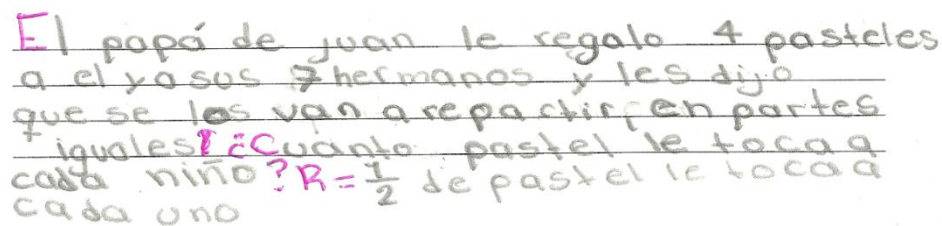 El papá de juan le regalo 4 pasteles
a el y a sus 7 hermanos y les dijo
que se los van a repartir, en partes
iguales! ¿Cuanto pastel le toca a
cada niño? R= 1/2 de pastel le toca a
cada uno